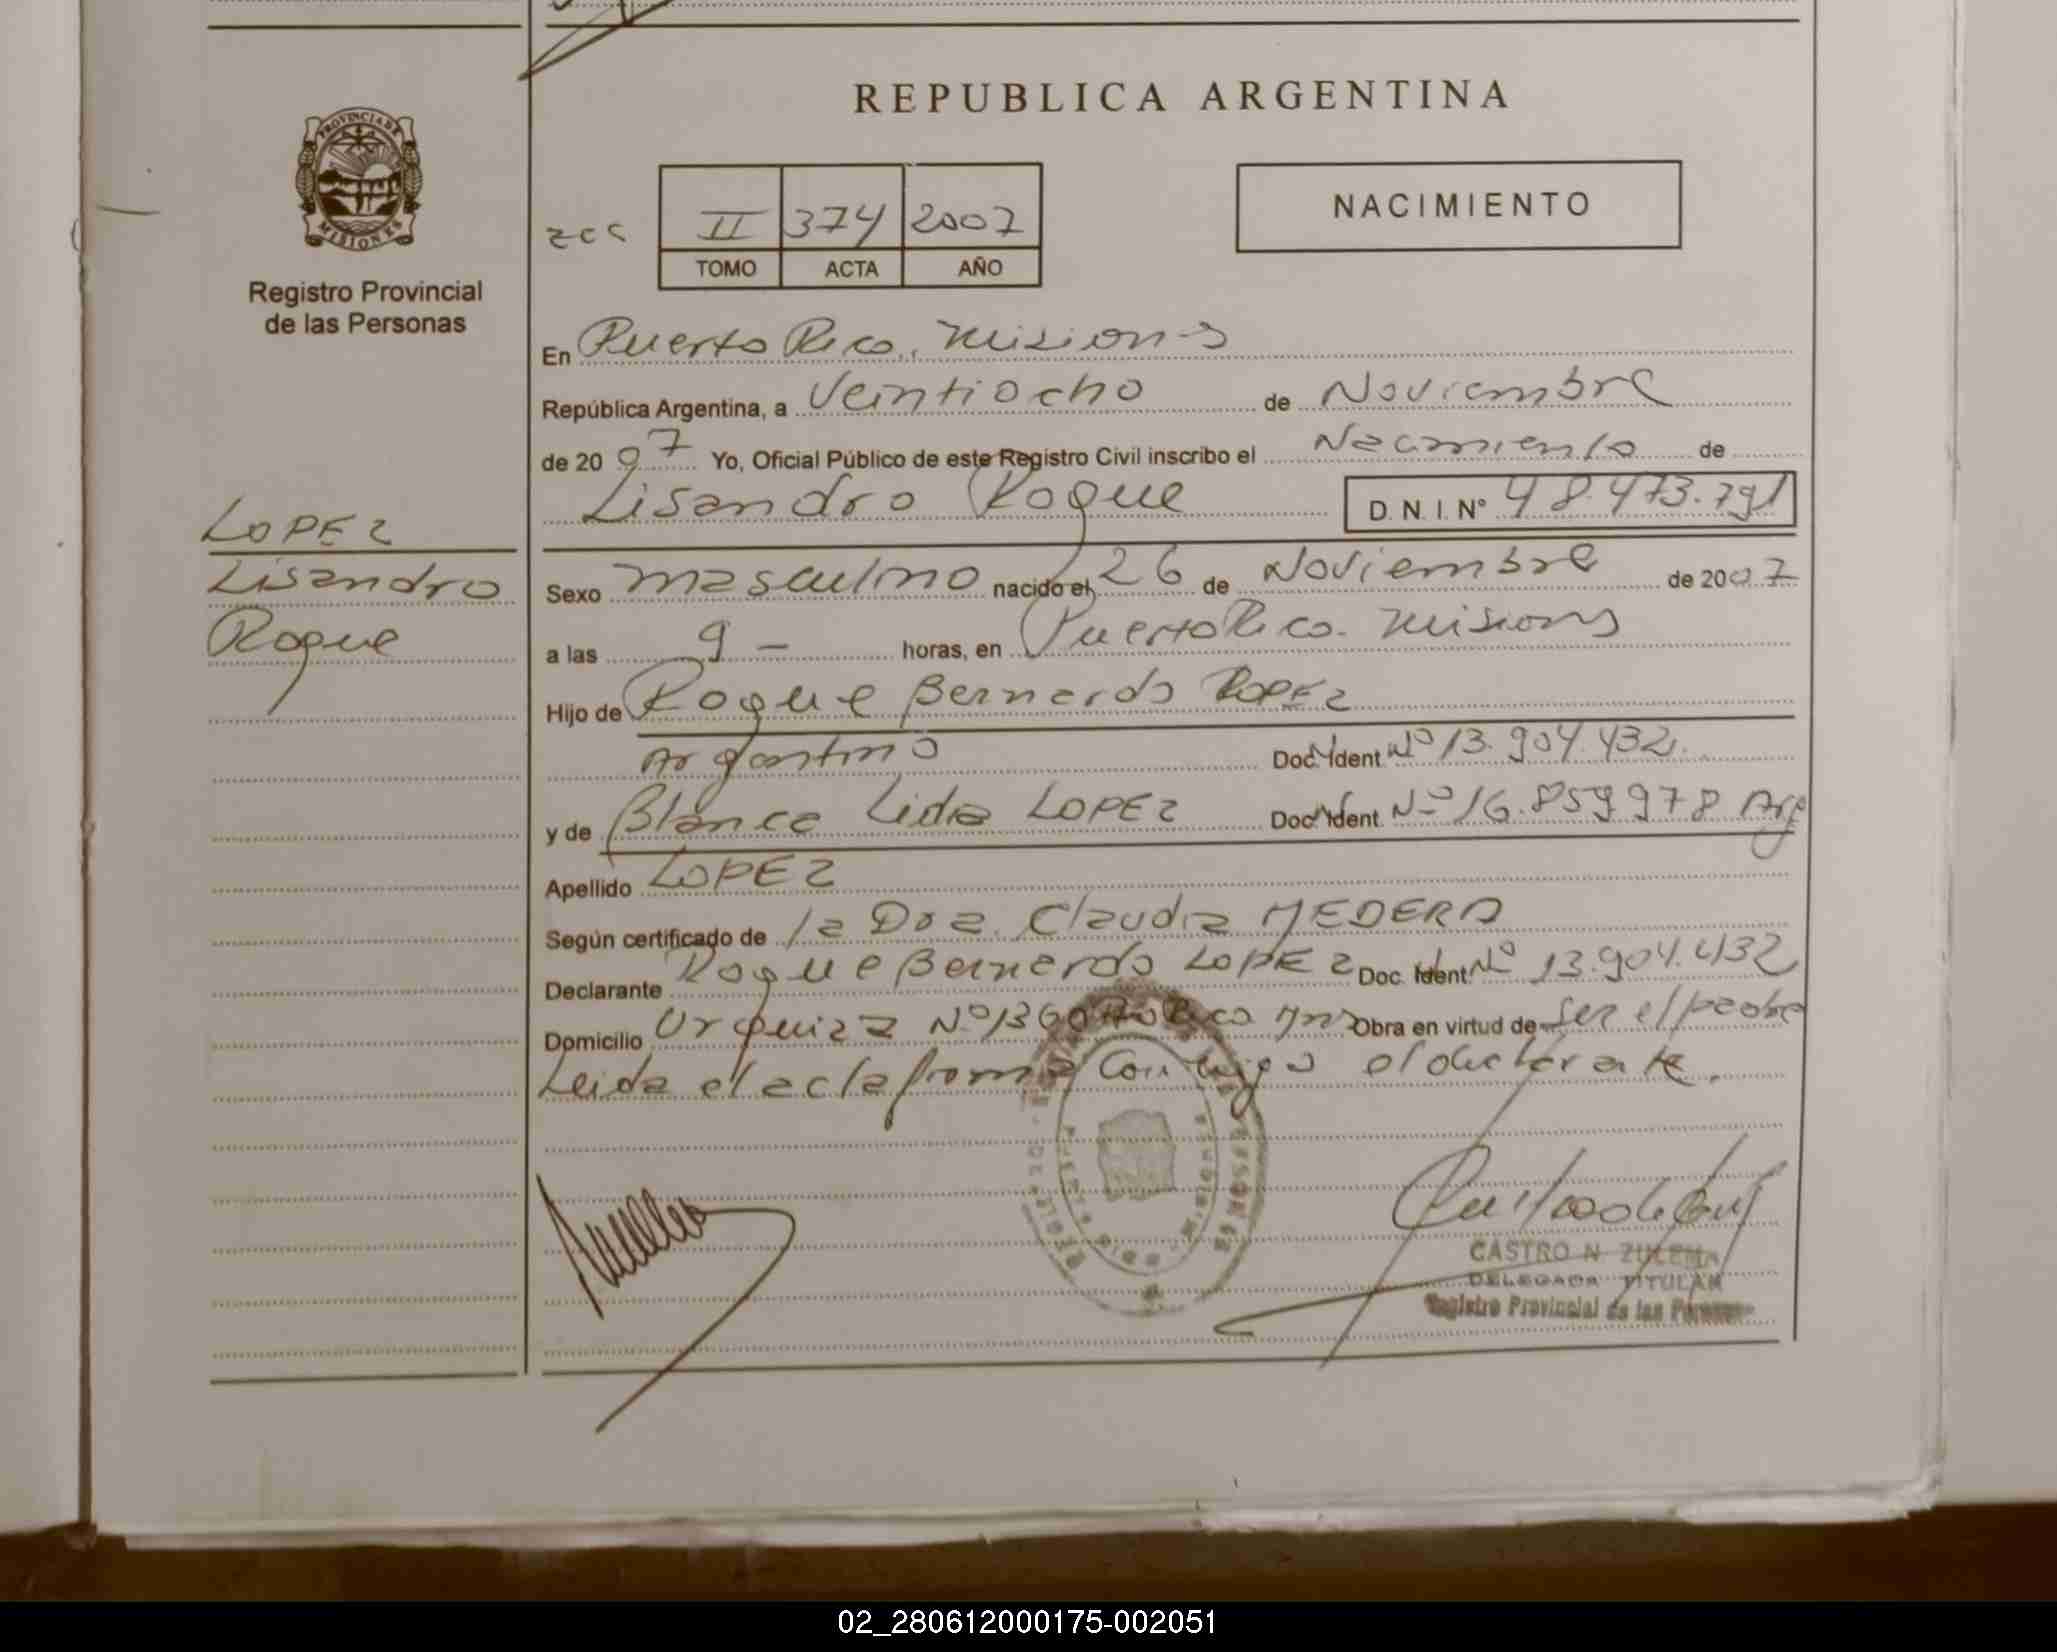 REPUBLICA ARGENTINA
PROVINCIA DE MISIONES
Registro Provincial
de las Personas
NACIMIENTO
zcc II 374 2007
TOMO ACTA AÑO
En Puerto Rico, Misiones
República Argentina, a Veintiocho de Noviembre
de 2007 Yo, Oficial Público de este Registro Civil inscribo el Nacimiento de
Lisandro Roque D.N.I. Nº 48.473.791
LOPEZ
Lisandro
Roque
Sexo masculino nacido el 26 de Noviembre de 2007
a las 9 - horas, en Puerto Rico. Misiones
Hijo de Roque Bernardo LOPEZ
Argentino Doc. Ident Nº 13.904.432.
y de Blanca Lidia LOPEZ Doc. Ident. Nº 16.859978 Arg
Apellido LOPEZ
Según certificado de la Dra. Claudia MEDERO
Declarante Roque Bernardo LOPEZ Doc. Ident. Nº 13.904.432
Domicilio Urquiza Nº 1360 Pto Rico Mns Obra en virtud de Ser el padre
Leida el acta firma conmigo el declarante.
CASTRO N. ZULEMA
DELEGADA TITULAR
Registro Provincial de las Personas
02_280612000175-002051